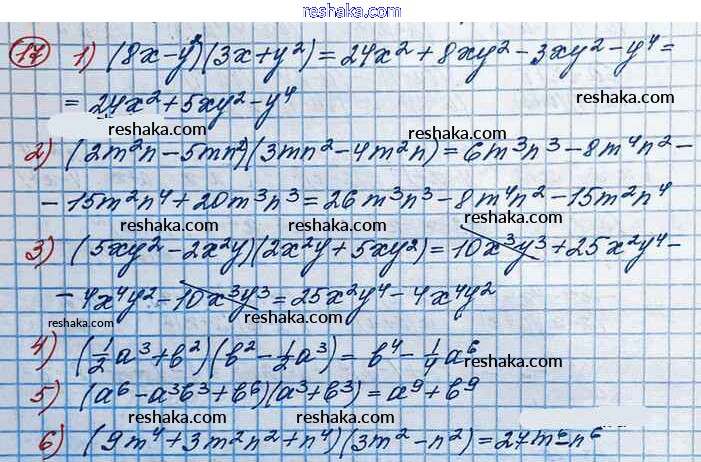 reshaka.com
17 1) (8x-y²)(3x+y²)=24x²+8xy²-3xy²-y⁴=
=24x²+5xy²-y⁴
reshaka.com reshaka.com
2) (2m²n-5mn²)(3mn²-4m²n)=6m³n³-8m⁴n²-
-15m²n⁴+20m³n³=26m³n³-8m⁴n²-15m²n⁴
reshaka.com reshaka.com reshaka.com
3) (5xy²-2x²y)(2x²y+5xy²)=10x³y³+25x²y⁴-
-4x⁴y²-10x³y³=25x²y⁴-4x⁴y²
reshaka.com reshaka.com reshaka.com
4) (½a³+b²)(b²-½a³)=b⁴-¼a⁶
5) (a⁶-a³b³+b⁶)(a³+b³)=a⁹+b⁹
reshaka.com reshaka.com
6) (9m⁴+3m²n²+n⁴)(3m²-n²)=27m⁶-n⁶
reshaka.com reshaka.com